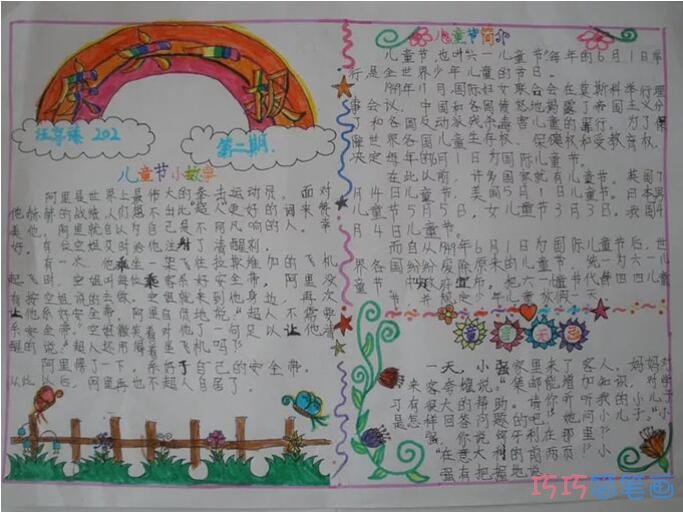 庆六一报
202
第二期.
儿童节小故事
阿里是世界上最伟大的拳击运动员。面对
他赫赫的战绩人们想不出比"超人"更好的词来赞
美他。阿里就自认为自己是不可凡响的人。幸
好,有位空姐及时给他注射了清醒剂。
有一次,他乘坐一架飞往拉斯维加的飞机
起飞时,空姐叫每位乘客系好安全带,阿里没
有按空姐说的去做。空姐就来到他身边,再次
让他系好安全带。阿里自负地说:"超人不需要
系安全带。"空姐微笑着对他了一句足以让他清
醒的说:"超人还用得着坐飞机吗?"
阿里愣了一下,系好了自己的安全带。
从此以后,阿里再也不超人自居了。
儿童节简介
儿童节,也叫"六一儿童节"每年的6月1日举
行,是全世界少年儿童的节日。
1949年11月,国际妇女联合会在莫斯科举行理
事会议,中国和各国愤怒地揭露了帝国主义分
子和各国反动派残杀毒害儿童的罪行。为了保
障世界各国儿童生存权、保健权和受教育权,
决定每年的6月1日为国际儿童节。
在此以前,许多国家就有儿童节。英国7
月14日儿童节,美国5月1日儿童节。日本男
儿童节5月5日,女儿童节3月3日。我国4
月4日儿童节。
而自从1949年6月1日为国际儿童节后,世
界各国纷纷废除原来的儿童节,统一为六一儿
童节。中央政府宣布,把六一儿童节代替四四儿童
节,并规定少年儿童放假一天。
童言无忌
一天,小强家里来了客人,妈妈对
来客夸耀说:"集邮能增加知识,对学
习有很大的帮助。请你听听我的小儿子
是怎样回答问题的吧!"她问小儿子:"小
强,你说匈牙利在那里?"小
"在意大利的前两页"
强有把握地说
巧巧简笔画